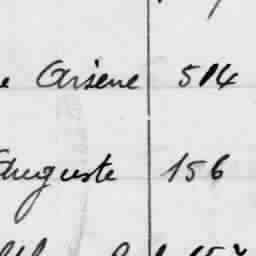 e Arsène 514
Auguste 156